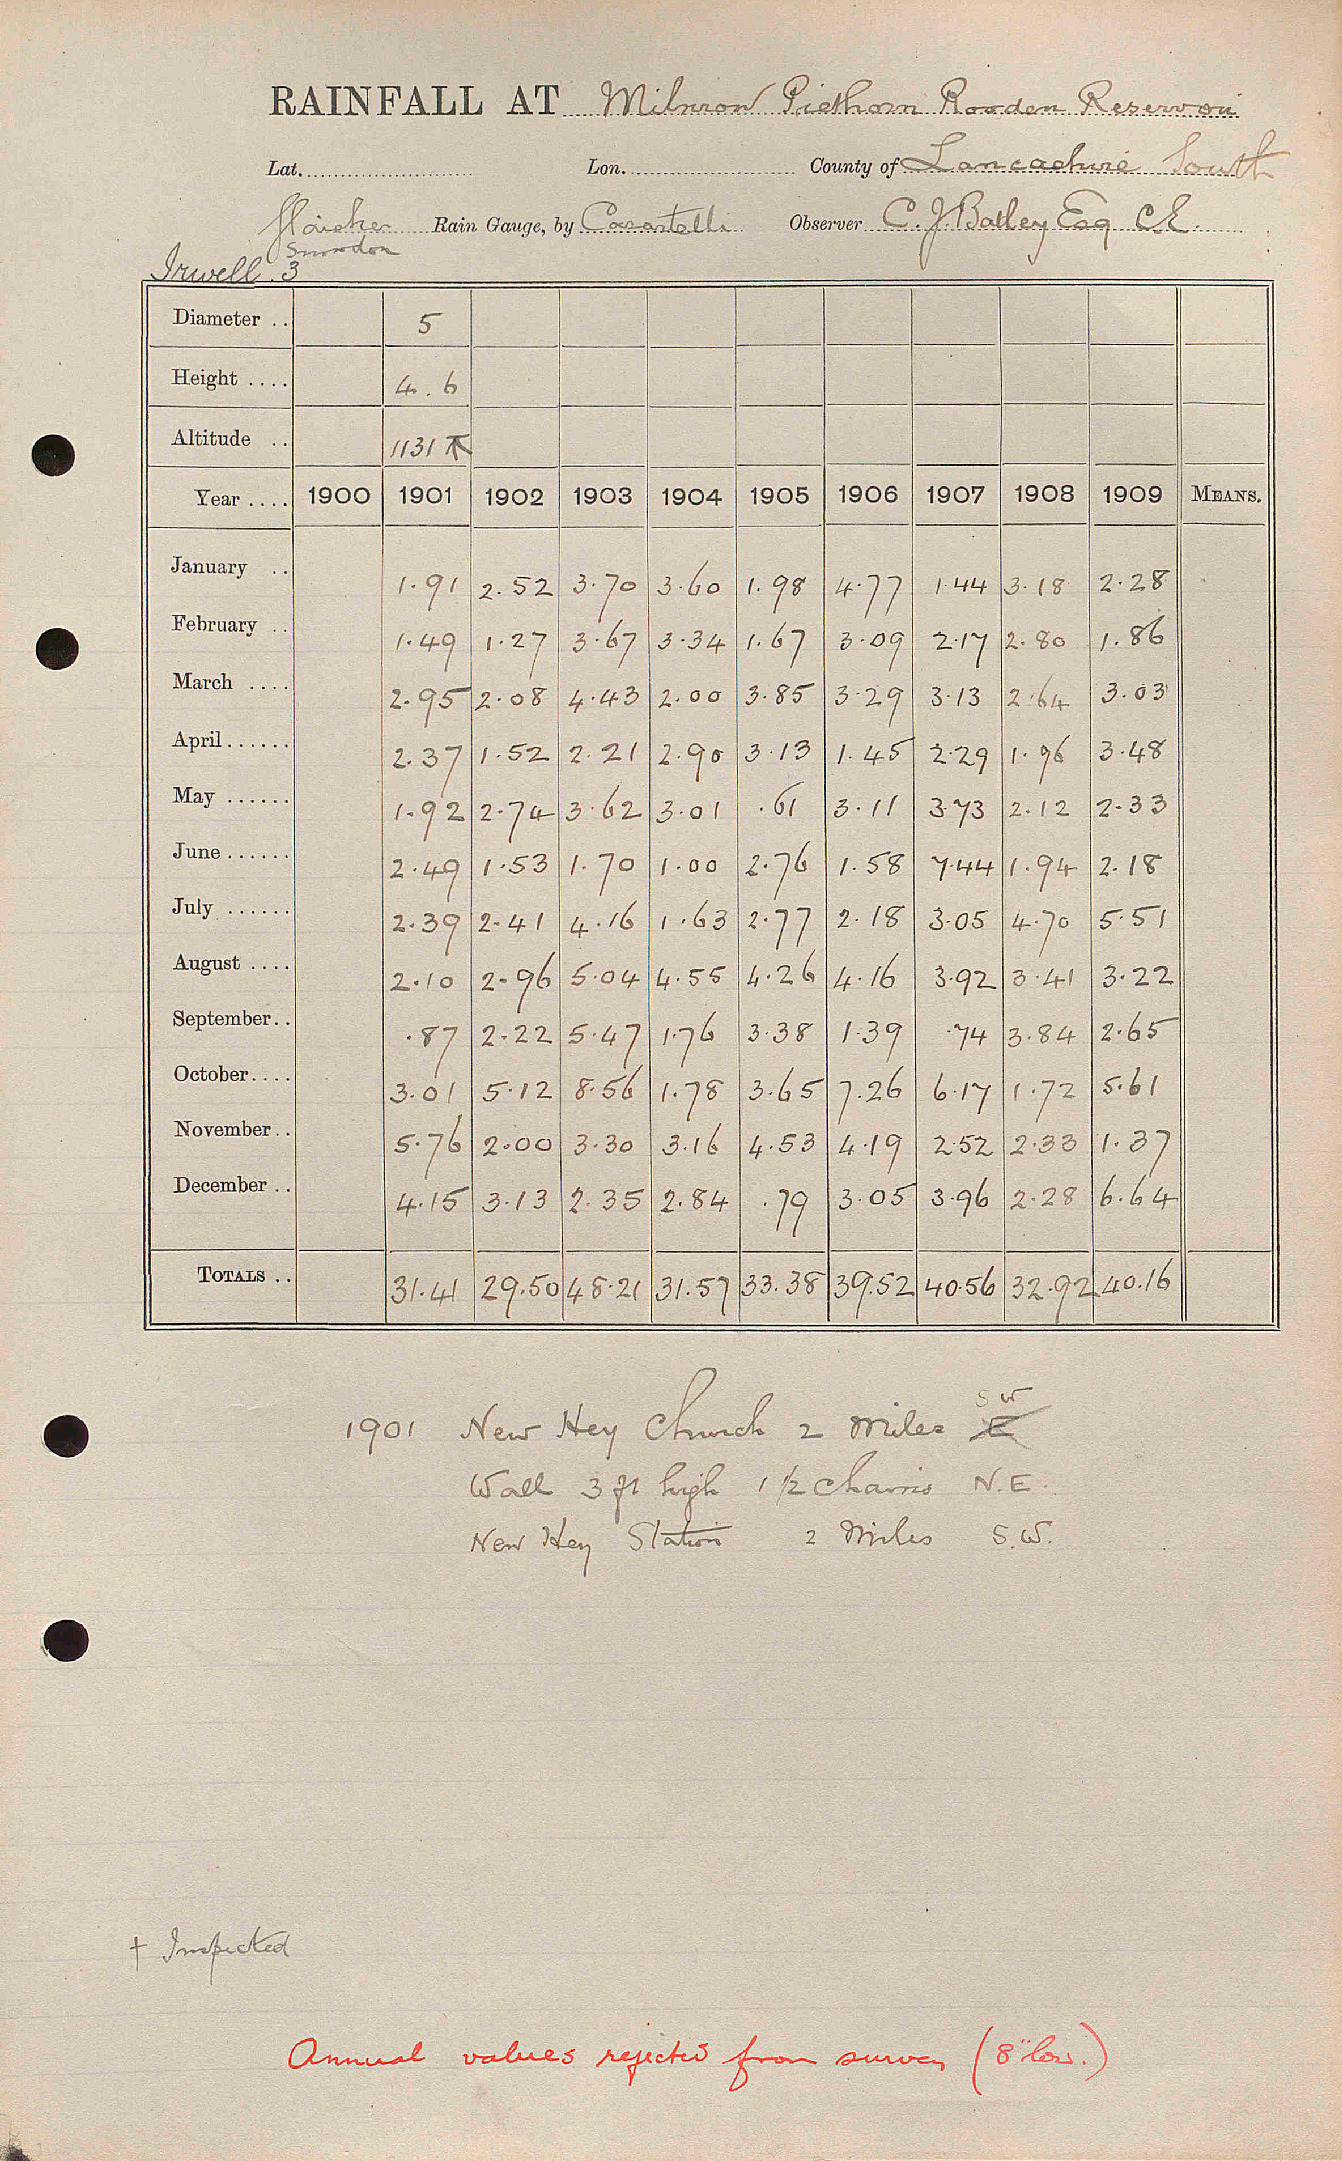 RAINFALL AT Milnrow Piethorn Rowden Reservoir
Lat. Lon. County of Lancashire South
Rain Gauge, by Casartelli Observer C. J. Batley Esq C.E.
Snowdon
Irwell . 3
Diameter .. 5
Height .... 4 . 6
Altitude .. 1131
Year .... 1900 1901 1902 1903 1904 1905 1906 1907 1908 1909 MEANS.
January .. 1.91 2.52 3.70 3.60 1.98 4.77 1.44 3.18 2.28
February .. 1.49 1.27 3.67 3.34 1.67 3.09 2.17 2.80 1.86
March .... 2.95 2.08 4.43 2.00 3.85 3.29 3.13 2.64 3.03
April...... 2.37 1.52 2.21 2.90 3.13 1.45 2.29 1.96 3.48
May ...... 1.92 2.74 3.62 3.01 .61 3.11 3.73 2.12 2.33
June ...... 2.49 1.53 1.70 1.00 2.76 1.58 7.44 1.94 2.18
July ...... 2.39 2.41 4.16 1.63 2.77 2.18 3.05 4.70 5.51
August .... 2.10 2.96 5.04 4.55 4.26 4.16 3.92 3.41 3.22
September.. .87 2.22 5.47 1.76 3.38 1.39 .74 3.84 2.65
October.... 3.01 5.12 8.56 1.78 3.65 7.26 6.17 1.72 5.61
November.. 5.76 2.00 3.30 3.16 4.53 4.19 2.52 2.33 1.37
December .. 4.15 3.13 2.35 2.84 .79 3.05 3.96 2.28 6.64
TOTALS .. 31.41 29.50 48.21 31.57 33.38 39.52 40.56 32.92 40.16
1901 New Hey Church 2 Miles SW
Wall 3 ft high 1 1/2 chains N.E.
New Hey Station 2 Miles S.W.
† Inspected
Annual values rejected from survey (8" low.)